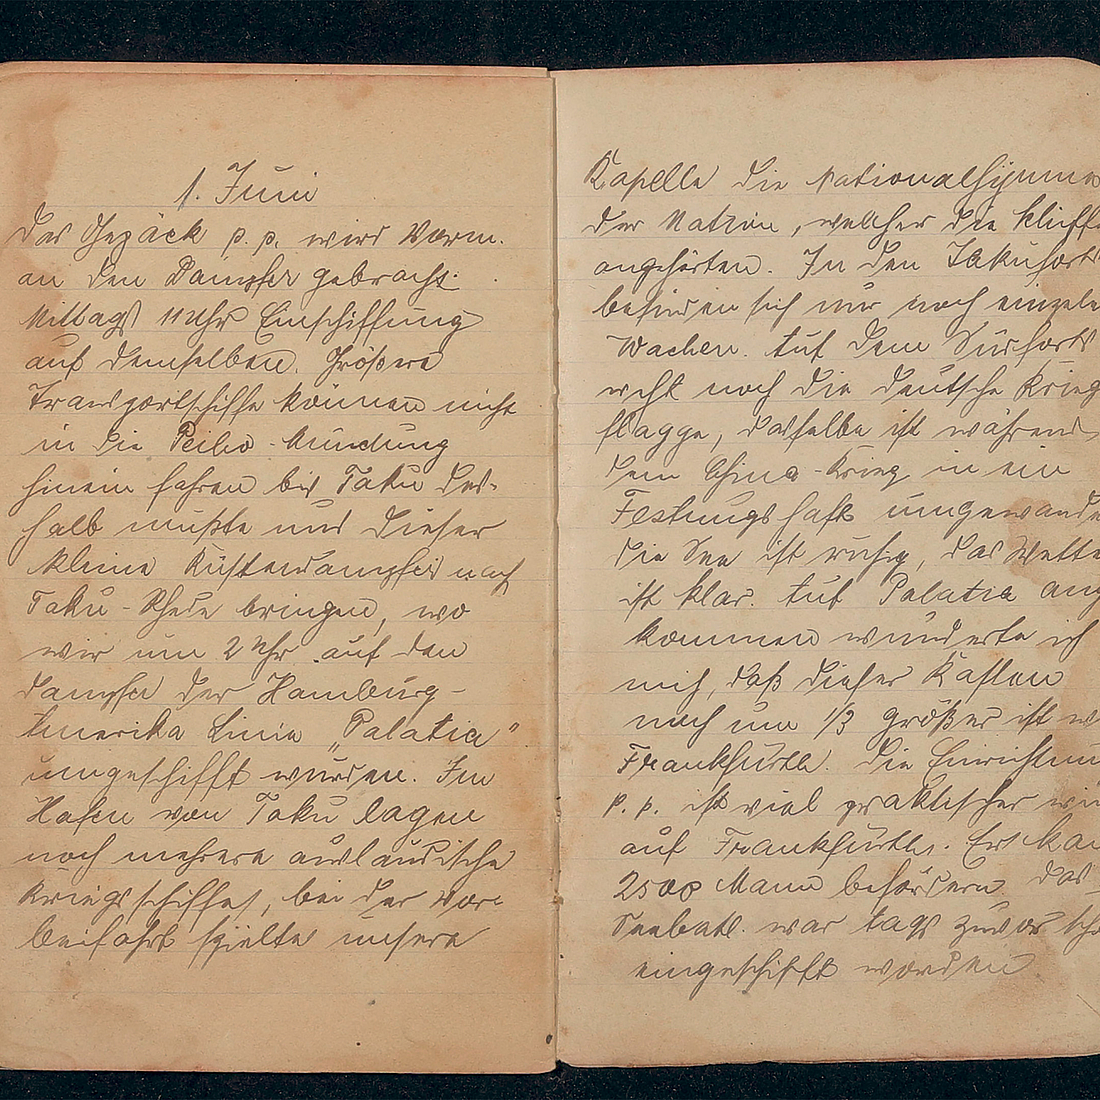 1. Juni
Das Gepäck p. p. wird Vorm.
an den Dampfer gebracht.
Mittags 11 Uhr Einschiffung
auf demselben. Größere
Transportschiffe können nicht
in die Peiho-Mündung
hinein fahren bis Taku des-
halb mußte uns dieser
kleine Küstendampfer nach
Taku-Rhede bringen, wo
wir um 2 Uhr auf den
Dampfer der Hamburg-
Amerika Linie „Palatia"
umgeschifft wurden. Im
Hafen von Taku lagen
noch mehrere ausländische
Kriegsschiffe, bei der Vor-
beifahrt spielte unsere
Kapelle die Nationalhymne
der Nation, welcher die Schiffe
angehörten. In den Takuforts
befinden sich nur noch einzeln
Wachen. Auf dem Südforts
weht noch die deutsche Krieg
flagge, dasselbe ist während
dem China-Krieg in ein
Festungshaft umgewande
Die See ist ruhig, das Wette
ist klar. Auf Palatia ang
kommen wunderte ich
mich, daß dieser Kasten
noch um 1/3 größer ist w
Frankfurth. Die Einrichtun
p. p. ist viel praktischer wie
auf Frankfurth. Er kan
2500 Mann befördern. Das
Seebatl. war tags zuvor scho
eingeschifft worden